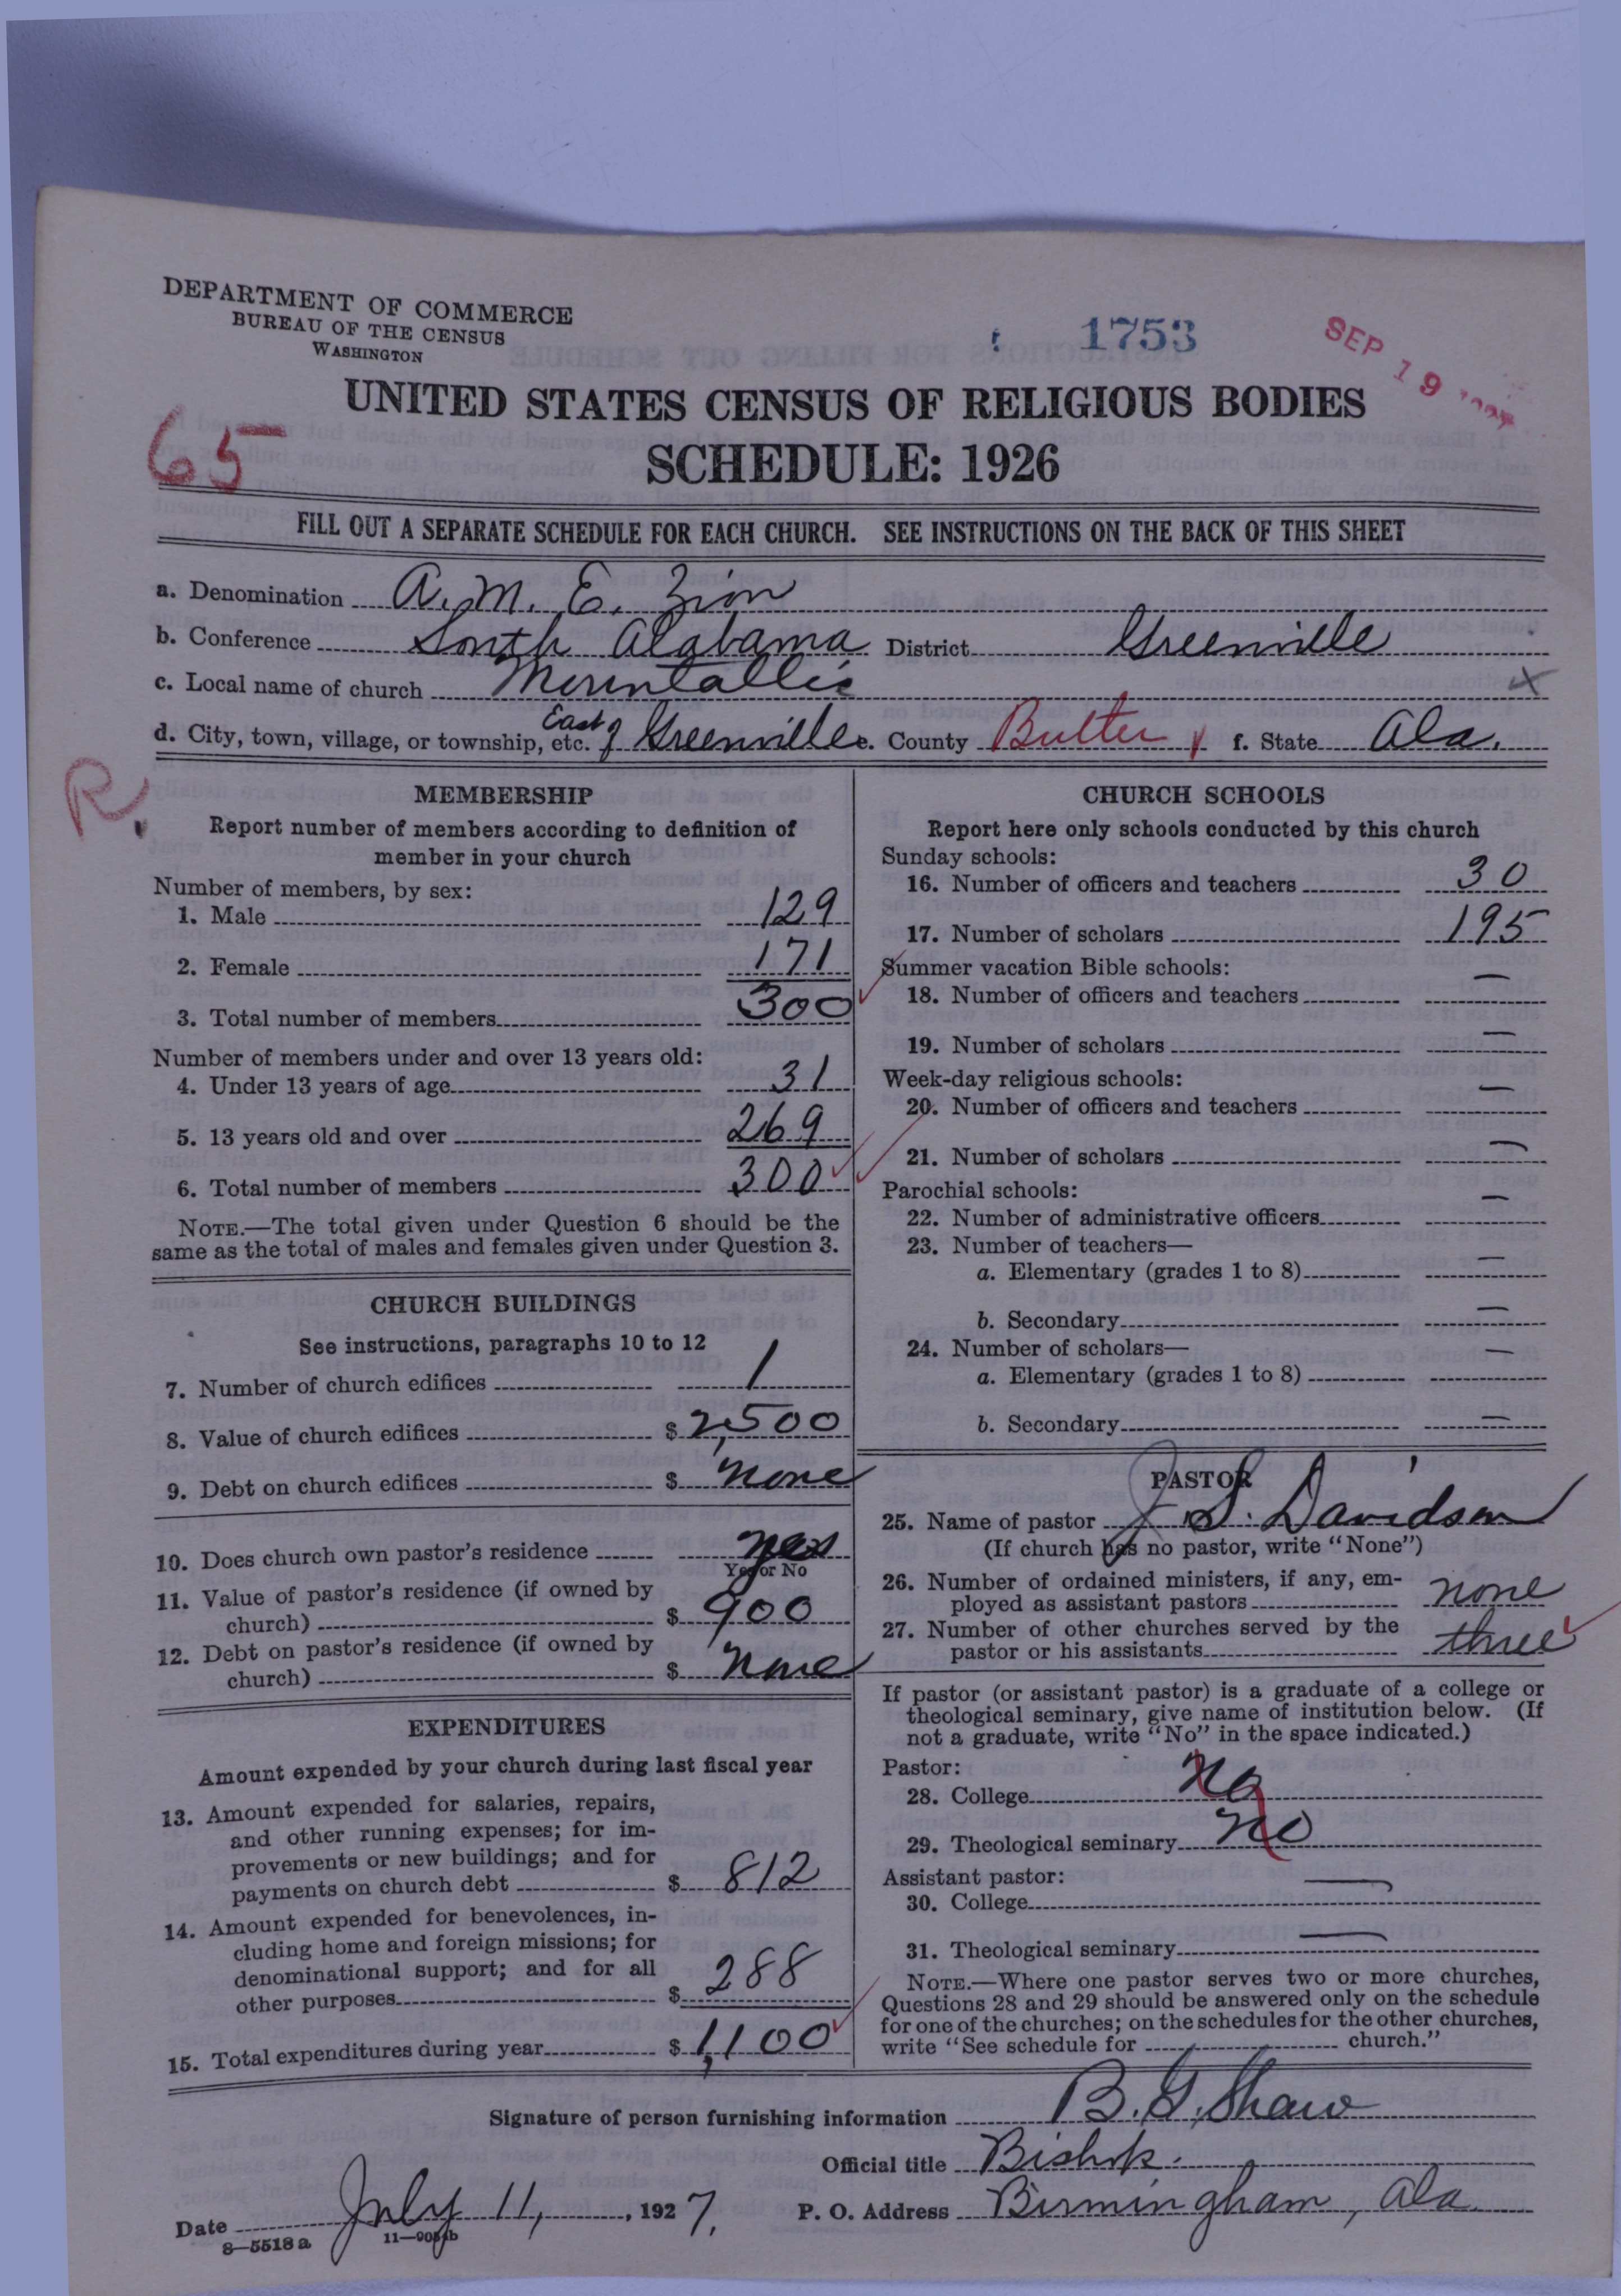 DEPARTMENT OF COMMERCE
BUREAU OF THE CENSUS
WASHINGTON
1753
SEP 19
65
UNITED STATES CENSUS OF RELIGIOUS BODIES
SCHEDULE: 1926
FILL OUT A SEPARATE SCHEDULE FOR EACH CHURCH. SEE INSTRUCTIONS ON THE BACK OF THIS SHEET
a. Denomination A. M. E. Zion
b. Conference South Alabama District Greenville
c. Local name of church
d. City, town, village, or township, etc. East of Greenville e. County Butler f. State Ala.
R.
MEMBERSHIP
Report number of members according to definition of
member in your church
Number of members, by sex:
1. Male 129
2. Female 171
3. Total number of members 300
Number of members under and over 13 years old:
4. Under 13 years of age 31
5. 13 years old and over 269
6. Total number of members 300
NOTE.—The total given under Question 6 should be the
same as the total of males and females given under Question 3.
CHURCH BUILDINGS
See instructions, paragraphs 10 to 12
7. Number of church edifices 1
8. Value of church edifices $ 2,500
9. Debt on church edifices $ none
10. Does church own pastor's residence yes
Yes or No
11. Value of pastor's residence (if owned by
church) $ 900
12. Debt on pastor's residence (if owned by
church) $ none
EXPENDITURES
Amount expended by your church during last fiscal year
13. Amount expended for salaries, repairs,
and other running expenses; for im-
provements or new buildings; and for
payments on church debt $ 812
14. Amount expended for benevolences, in-
cluding home and foreign missions; for
denominational support; and for all
other purposes $ 288
15. Total expenditures during year $ 1,100
CHURCH SCHOOLS
Report here only schools conducted by this church
Sunday schools:
16. Number of officers and teachers 30
17. Number of scholars 195
Summer vacation Bible schools:
18. Number of officers and teachers —
19. Number of scholars —
Week-day religious schools:
20. Number of officers and teachers —
21. Number of scholars —
Parochial schools:
22. Number of administrative officers —
23. Number of teachers—
a. Elementary (grades 1 to 8) —
b. Secondary —
24. Number of scholars—
a. Elementary (grades 1 to 8) —
b. Secondary —
PASTOR
25. Name of pastor J. S. Davidson
(If church has no pastor, write "None")
26. Number of ordained ministers, if any, em-
ployed as assistant pastors none
27. Number of other churches served by the
pastor or his assistants three
If pastor (or assistant pastor) is a graduate of a college or
theological seminary, give name of institution below. (If
not a graduate, write "No" in the space indicated.)
Pastor:
28. College No
29. Theological seminary No
Assistant pastor:
30. College —
31. Theological seminary —
NOTE.—Where one pastor serves two or more churches,
Questions 28 and 29 should be answered only on the schedule
for one of the churches; on the schedules for the other churches,
write "See schedule for church."
Signature of person furnishing information B. G. Shaw
Official title Bishop.
Date July 11, 1927. P. O. Address Birmingham, Ala.
8—5518a 11—9054b